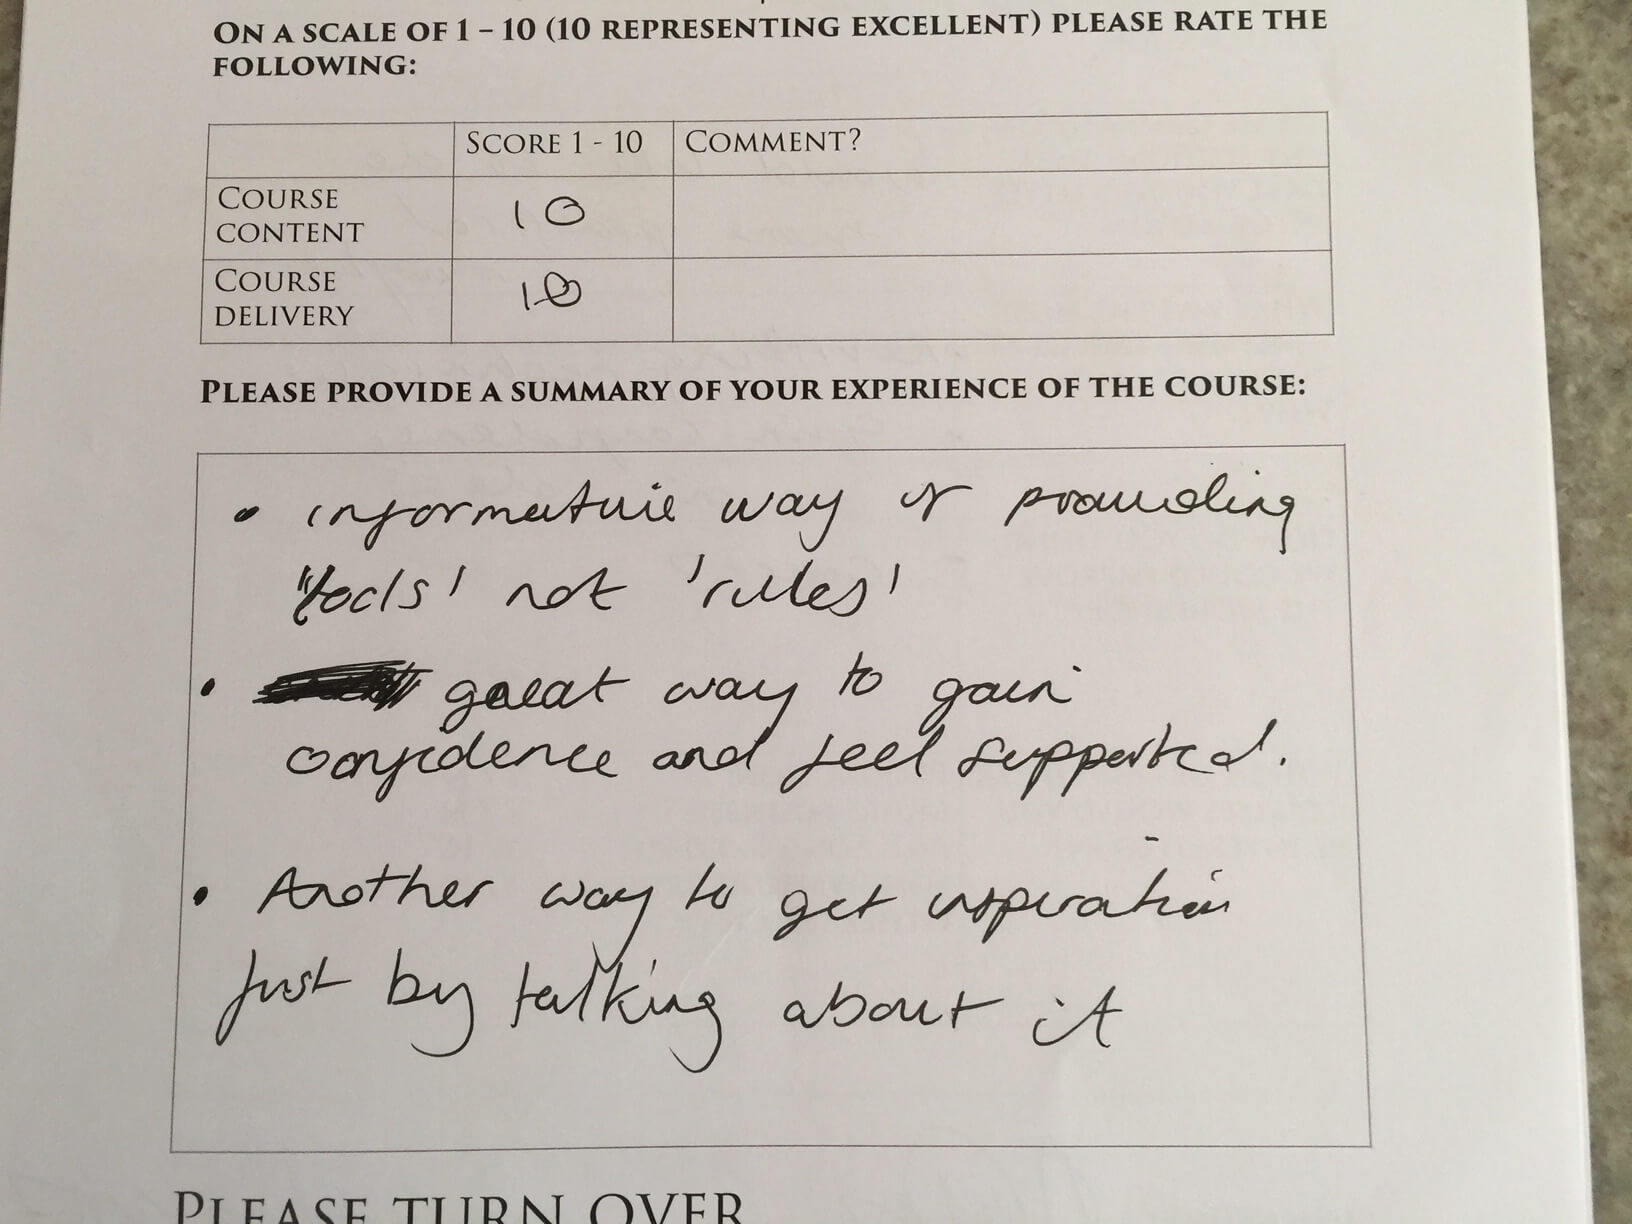 ON A SCALE OF 1 – 10 (10 REPRESENTING EXCELLENT) PLEASE RATE THE
FOLLOWING:
SCORE 1 - 10 COMMENT?
COURSE
CONTENT
10
COURSE
DELIVERY
10
PLEASE PROVIDE A SUMMARY OF YOUR EXPERIENCE OF THE COURSE:
• informative way of providing
'tools' not 'rules'
• great way to gain
confidence and feel supported.
• Another way to get inspiration
just by talking about it
PLEASE TURN OVER